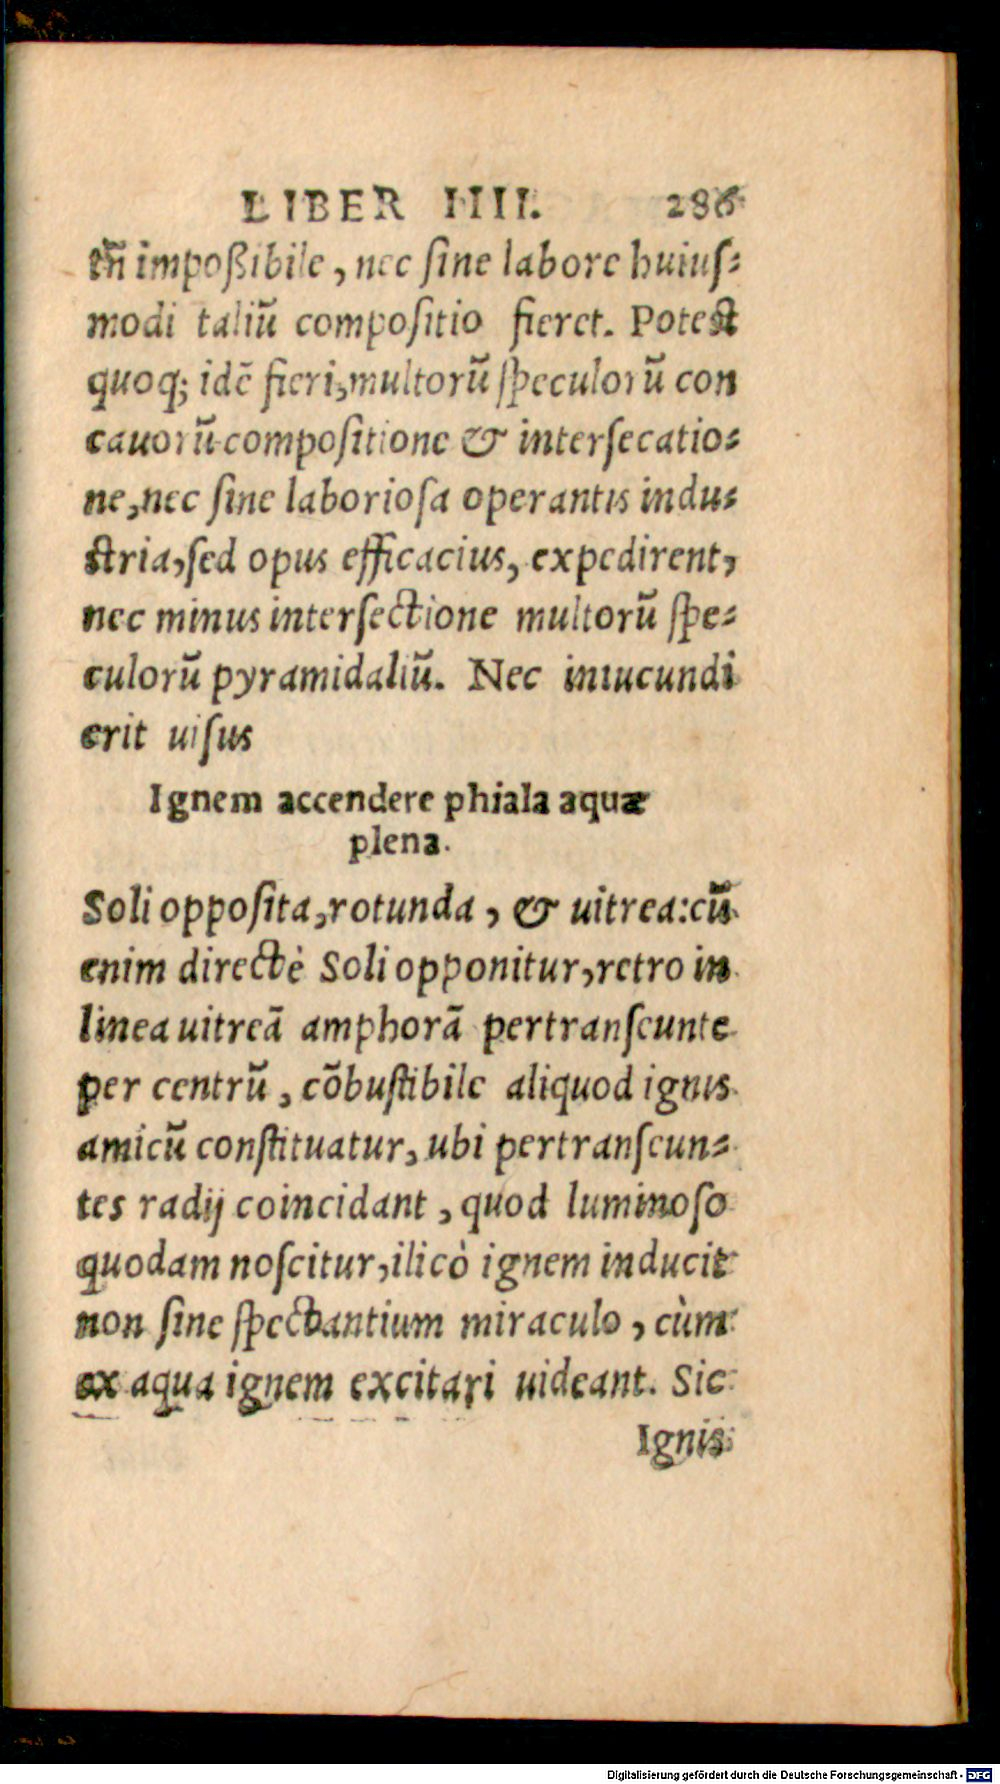 LIBER IIII. 286
tñ impoßibile, nec ſine labore huiuſ⸗
modi taliũ compoſitio fieret. Poteſt
quoq; idē fieri, multorũ ſpeculorũ con
cauorũ compoſitione & interſecatio⸗
ne, nec ſine laborioſa operantis indu⸗
ſtria, ſed opus efficacius, expedirent,
nec minus interſectione multorũ ſpe⸗
culorũ pyramidaliũ. Nec iniucundi
erit uiſus
Ignem accendere phiala aquæ
plena.
Soli oppoſita, rotunda, & uitrea: cũ
enim directè Soli opponitur, retro in
linea uitreā amphorā pertranſeunte
per centrũ, cōbuſtibile aliquod ignis
amicũ conſtituatur, ubi pertranſeun⸗
tes radij coincidant, quod luminoſo
quodam noſcitur, ilicò ignem inducit
non ſine ſpectantium miraculo, cùm
ex aqua ignem excitari uideant. Sic
Ignis
Digitalisierung gefördert durch die Deutsche Forschungsgemeinschaft - DFG